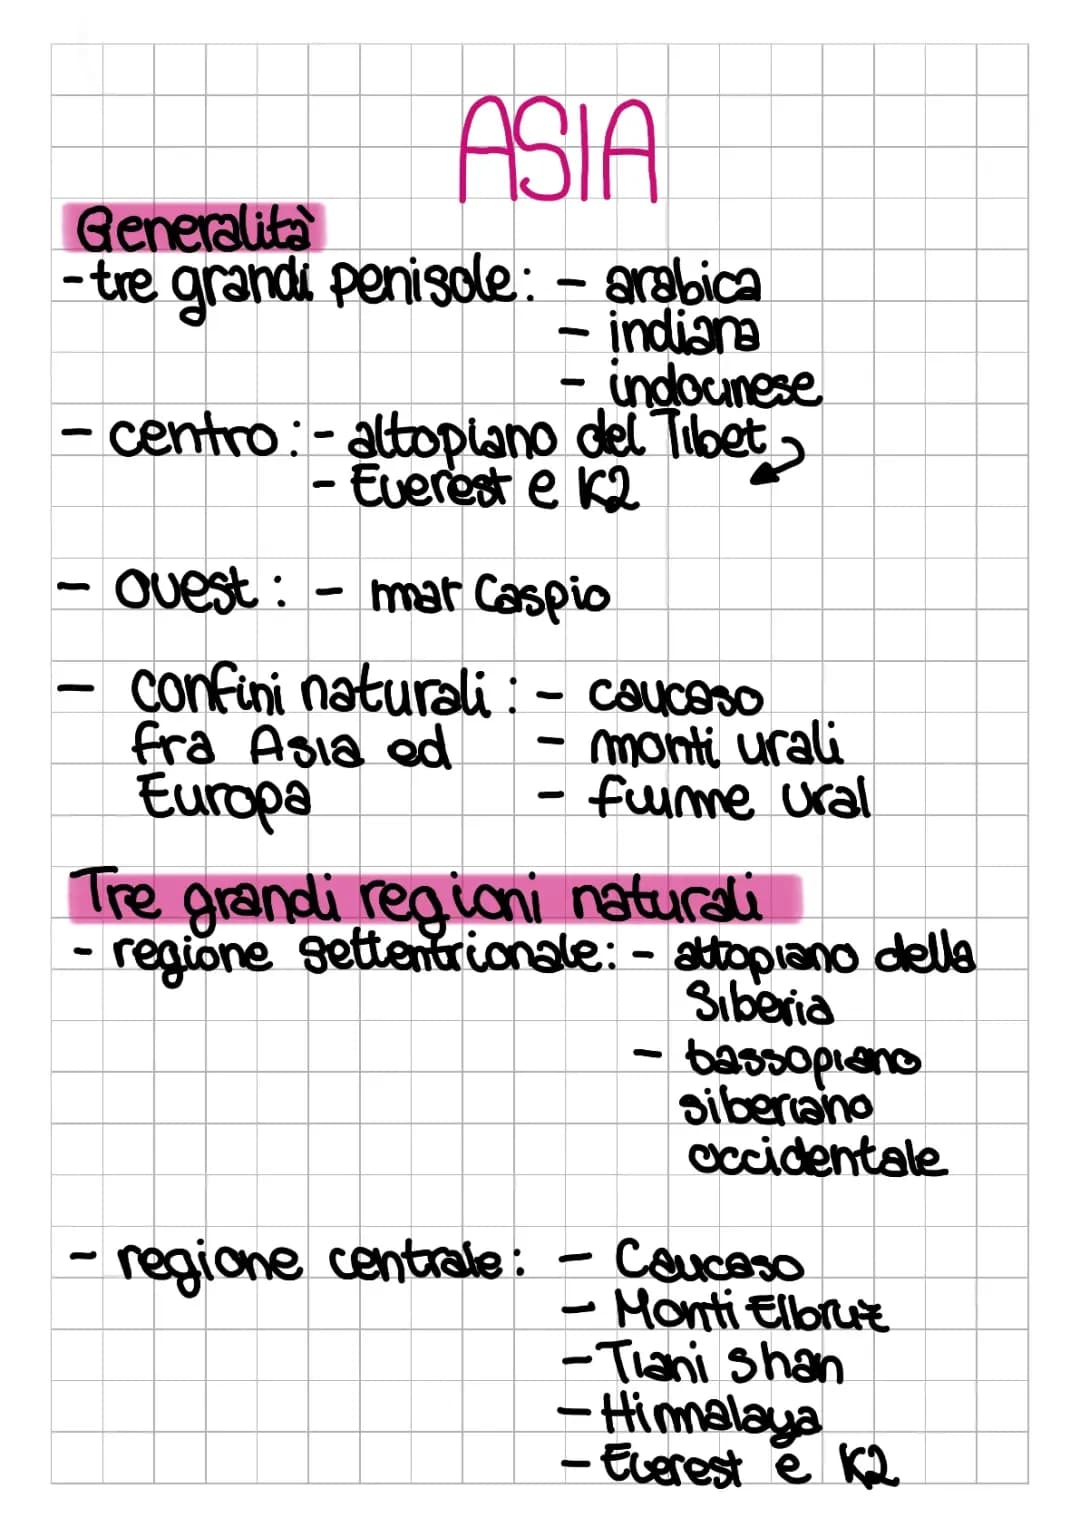 ASIA
Generalità
- tre grandi penisole: - arabica
- indiana
- indocinese
- centro: - altopiano del Tibet
- Everest e K2
- Ovest: - mar Caspio
- confini naturali: - caucaso
fra Asia ed - monti urali
Europa - fiume ural
Tre grandi regioni naturali
- regione settentrionale: - altopiano della
Siberia
- bassopiano
siberiano
occidentale
- regione centrale: - Caucaso
- Monti Elbruz
- Tiani shan
- Himmalaya
- Everest e K2